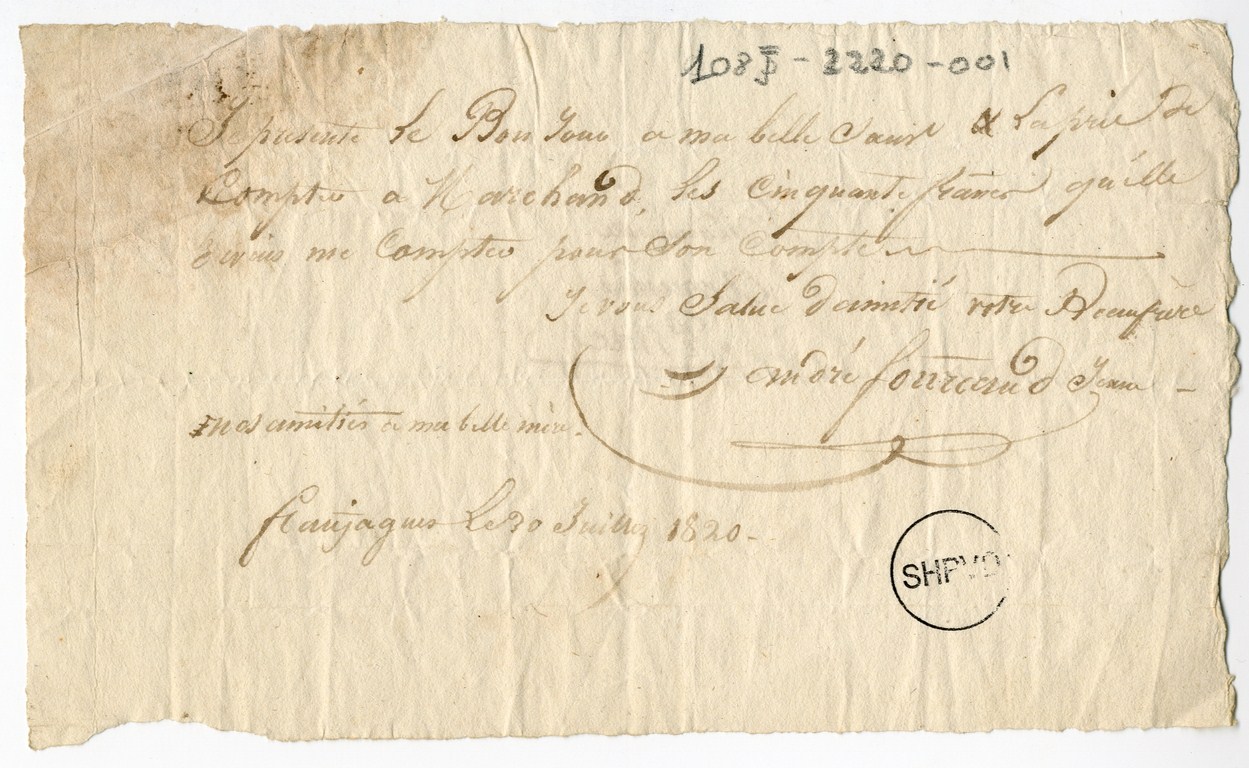 108 J - 2220 - 001
Je presente le Bon Jour a ma belle Sœur & La prie De
Compter a Marchand, les Cinquante francs qu'elle
devais me Compter pour Son Compte
Je vous Salue d'amitié votre Beaufrère
andré fourcaud Jeune
nos amitiés a ma belle mère.
Le 30 Juillet 1820 -
SHPVD